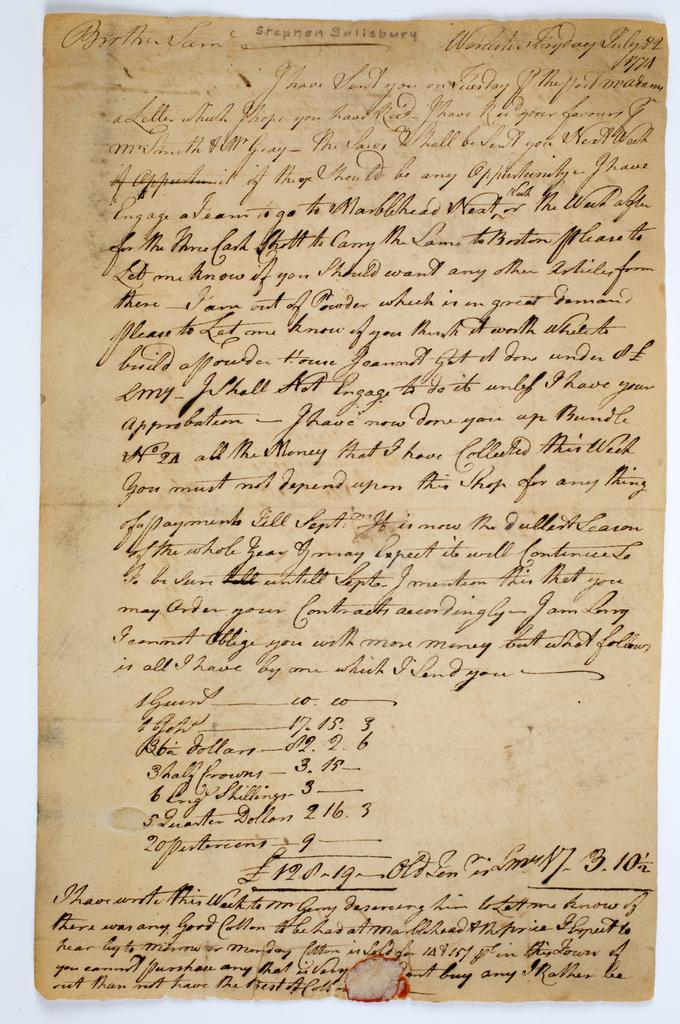 Brother Sam
Stephen Salisbury
Worcester Fryday July 22
1774
I have Sent you on Tuesday the post
a Letter which I hope you have Recd I have Recd your favours
Mr Smith & Mr Gray - The Saws Shall be Sent you Next Week
if there Should be any Oppertunity - I have
Engage a Team to go to Marblehead Next Week or the Week after
for the three Cask Shott to Carry the Same to Boston please to
Let me know if you Should want any other Articles from
there - I am out of Powder which is in great Demand
please to Let me know if you think it worth while to
build a powder House I cannot Get it done under 8 £
LMy - I Shall Not Engage to do it unless I have your
approbation - I have now done you up Bundle
No 24 all the Money that I have Collected this Week
You must not depend upon this Shop for any thing
of payments Till Sept. It is now the dullest Season
of the whole Year & may Expect it will Continue So
To be Sure untill Sept. I mention this that you
may Order your Contracts accordingly - I am Sorry
I cannot Oblige you with more money but what follows
is all I have by me which I Send you
1 Guin 10. 10
17. 15. 3
36½ Dollars - 82. 2. 6
3 half Crowns - 3. 15
6 Eng Shillings 3
5 Quarter Dollars 2 16. 3
20 pistereens - 9
£128 - 19 - Old Ten r is LMy 17. 3. 10½
I have wrote this Week to Mr Gerry desireing him to Let me know if
there was any Good Cotton to be had at Marblehead & the price I Expect to
hear by to morrow or Monday Cotton is Sold for 14 & 15/ in this Town if
you cannot purchase any that is Very buy any I Rather be
out than not have the best of Cotton